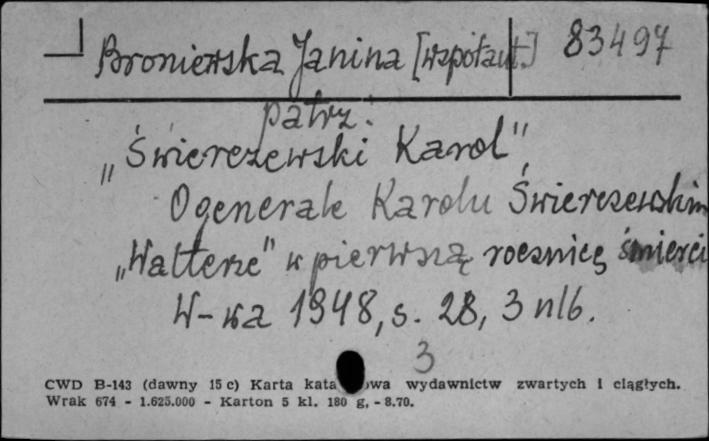 Broniewska Janina [współaut.] 83497
patrz:
„Świerczewski Karol",
O generale Karolu Świerczewskim
„Walterze" w pierwszą rocznicę śmierci
W-wa 1948, s. 28, 3 nlb.
3
CWD B-143 (dawny 15 c) Karta kata owa wydawnictw zwartych i ciągłych.
Wrak 674 - 1.625.000 - Karton 5 kl. 180 g, - 8.70.